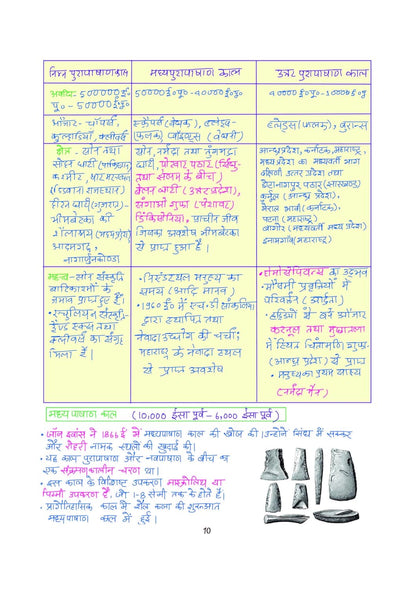 निम्न पुरापाषाणकाल
मध्यपुरापाषाण काल
उत्तर पुरापाषाण काल
अवधि:- 500000 ई०
पू० - 50000 ई०पू०
50000 ई०पू० - 40000 ई०पू०
40000 ई०पू० - 10000 ई०पू०
औजार- चॉपर्स,
कुल्हाड़ियाँ, क्लीवर्स
स्क्रैपर्स (बेधक), ब्लेडस-
फलक, प्वाइंट्स (बेधनी)
ब्लेडस (फलक), बुरान्स
क्षेत्र- सोन तथा
सोहन घाटी (पाकिस्तान)
कश्मीर, थार मरुस्थल
(डिडवाना राजस्थान)
हिरन घाटी (गुजरात)
भीमबेटका की
शैलाश्रय (मध्यप्रदेश)
आदमगढ़,
नागार्जुनकोण्डा
सोन, नर्मदा तथा तुंगभद्रा
घाटी, पोखार पठार (सिंधु
तथा झेलम के बीच)
बेलन घाटी (उत्तरप्रदेश),
संगाओ गुफा (पेशावर)
डिकियोपिया, प्राचीन जीव
जिनका अवशेष भीमबेटका
से प्राप्त हुआ है।
आन्ध्रप्रदेश, कर्नाटक, महाराष्ट्र,
मध्य प्रदेश का मध्यवर्ती भाग
दक्षिणी उत्तर प्रदेश तथा
छोटानागपुर पठार (झारखण्ड)
कुर्नूल (आन्ध्र प्रदेश),
मेराल भावी (कर्नाटक),
पटना (महाराष्ट्र)
बागोर (मध्यवर्ती मध्य प्रदेश)
इनामगाँव (महाराष्ट्र)
महत्व - सोन संस्कृति
बाटिकाश्म के
प्राप्त हुए हैं,
हैण्ड एक्स तथा
क्लीवर्स का संग्रह
मिला है।
नियण्डरथल मनुष्य का
समय (आदि मानव)
1960 ई० में एच०डी सांकलिया
द्वारा स्थापित तथा
नेवादा उद्योग की चर्चा;
महाराष्ट्र के नेवादा स्थल
से प्राप्त अवशेष
होमोसेपियन्स का उद्भव
मौसमी प्रवृत्तियों में
परिवर्तन (आर्द्रता)
हड्डियों से बने औजार
करनूल तथा मुच्छातला
में स्थित चिंतामणि गुफा-
(आन्ध्र प्रदेश) से प्राप्त
मनुष्य का प्रथम साक्ष्य
(नर्मदा मैन)
मध्य पाषाण काल (10,000 ईसा पूर्व - 6,000 ईसा पूर्व)
• जॉन इवांस ने 1866 ई में मध्यपाषाण काल की खोज की। उन्होंने सिंध में सक्कर
और रोहरी नामक स्थलों की खुदाई की।
• यह काल पुरापाषाण काल और नवपाषाण के बीच का
एक संक्रमणकालीन चरण था।
• इस काल के विशिष्ट उपकरण माइक्रोलिथ या
पिग्मी उपकरण हैं, जो 1-8 सेमी तक के होते हैं।
• प्रागैतिहासिक काल में शैल कला की शुरुआत
मध्यपाषाण काल में हुई।
10